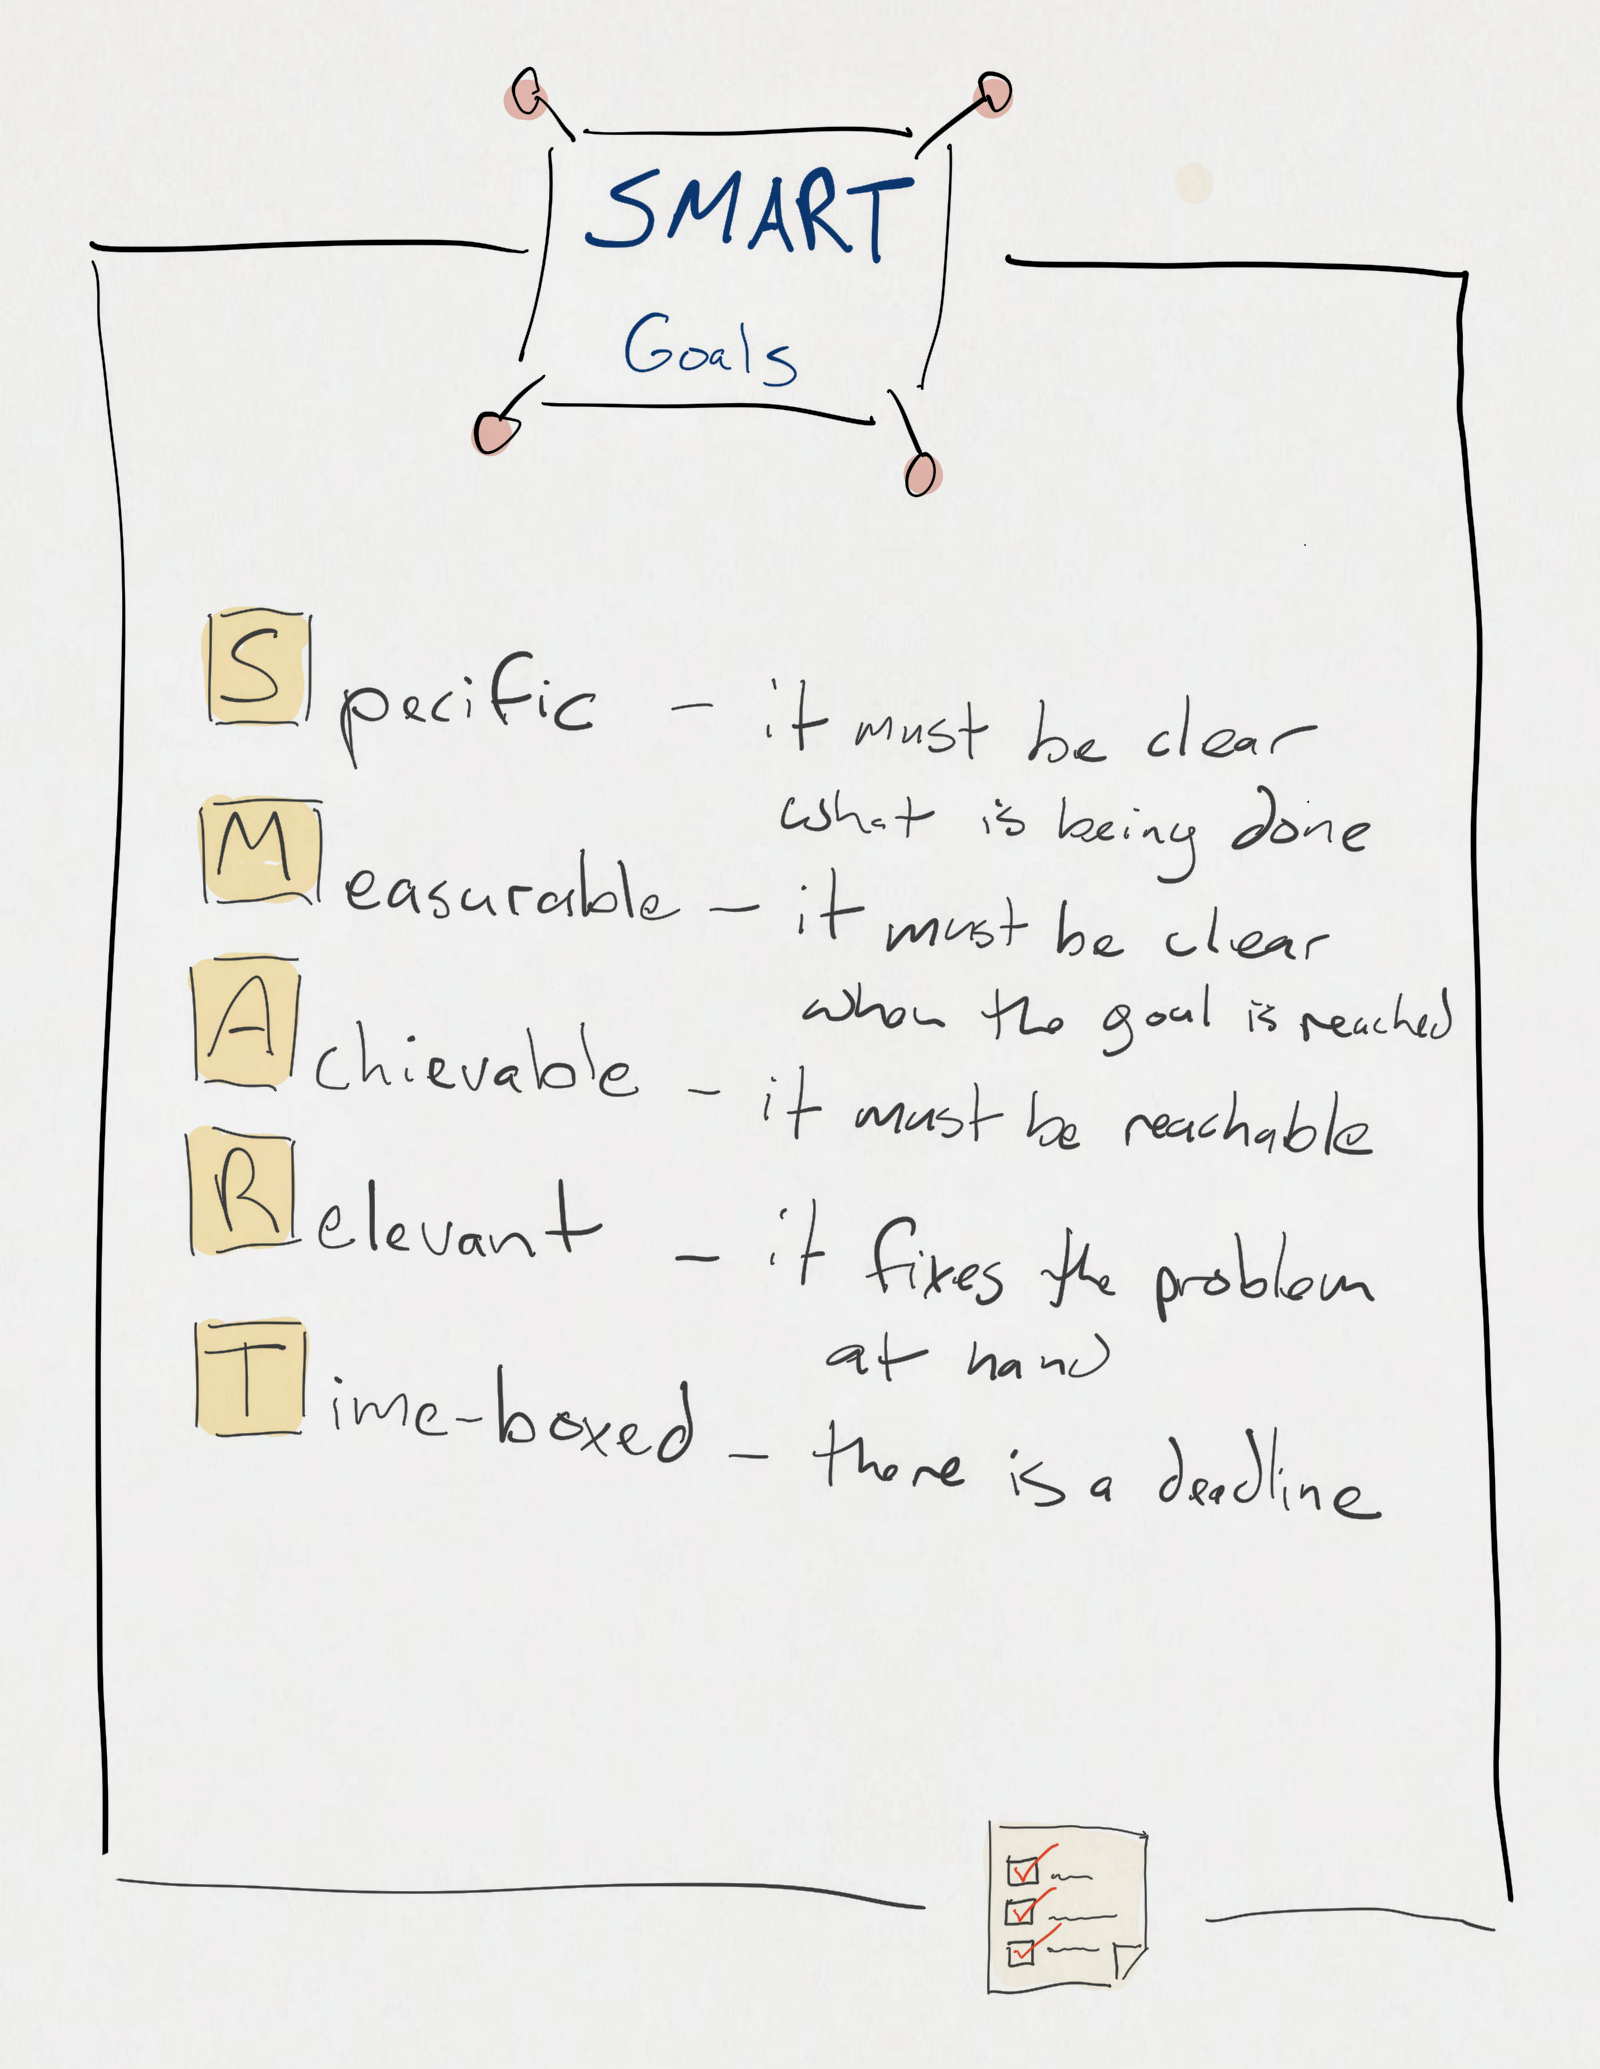 SMART
Goals
Specific - it must be clear
what is being done
Measurable - it must be clear
when the goal is reached
Achievable - it must be reachable
Relevant - it fixes the problem
at hand
Time-boxed - there is a deadline